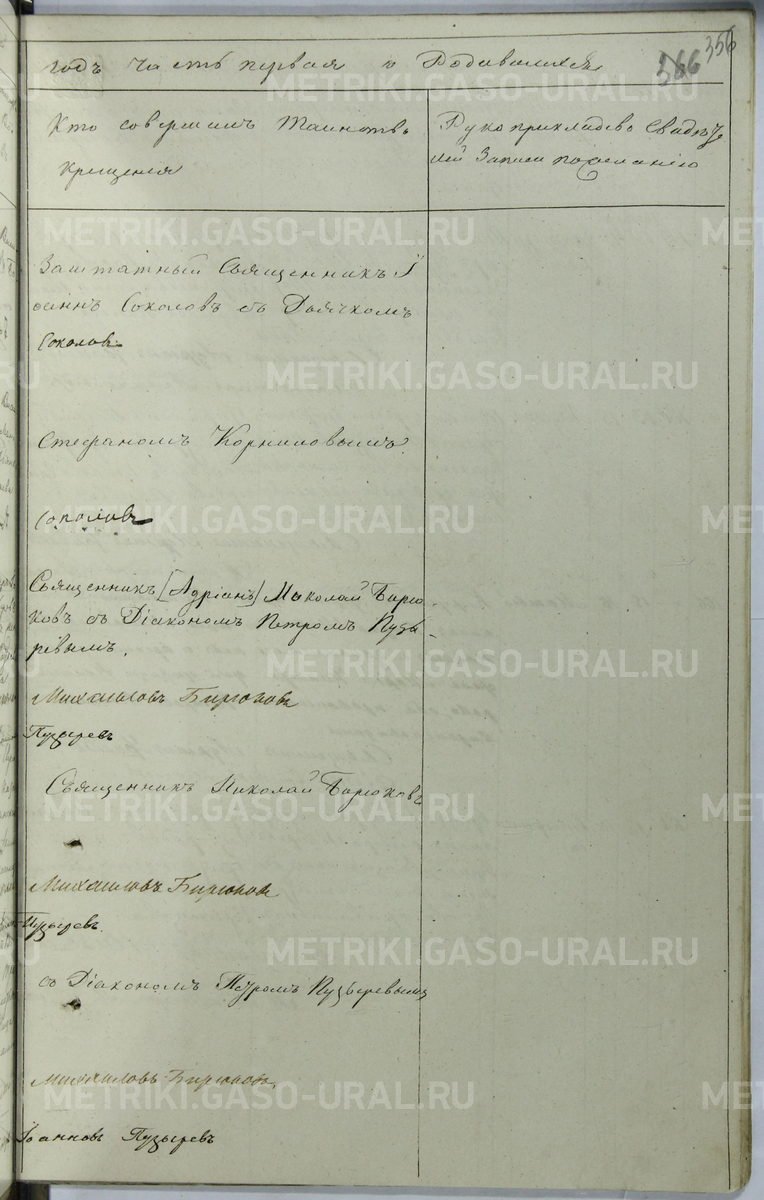 годъ часть первая о Родившихся
366 356
Кто совершалъ Таинство
крещенія
Рукоприкладство Свидѣте
лей записи по желанію
Заштатный Священникъ І
оаннъ Соколовъ съ Дьячкомъ
Соколовъ
Стефаномъ Корниловымъ.
Соколовъ
Священникъ [Адріанъ] Николай Бирю
ковъ съ Діакономъ Петромъ Пузы
ревымъ.
Михаиловъ Бирюковъ
Пузыревъ
Священникъ Николай Бирюковъ
Михаиловъ Бирюковъ
Пузыревъ.
съ Діакономъ Петромъ Пузыревымъ
Михаиловъ Бирюковъ
Іоанновъ Пузыревъ
METRIKI.GASO-URAL.RU